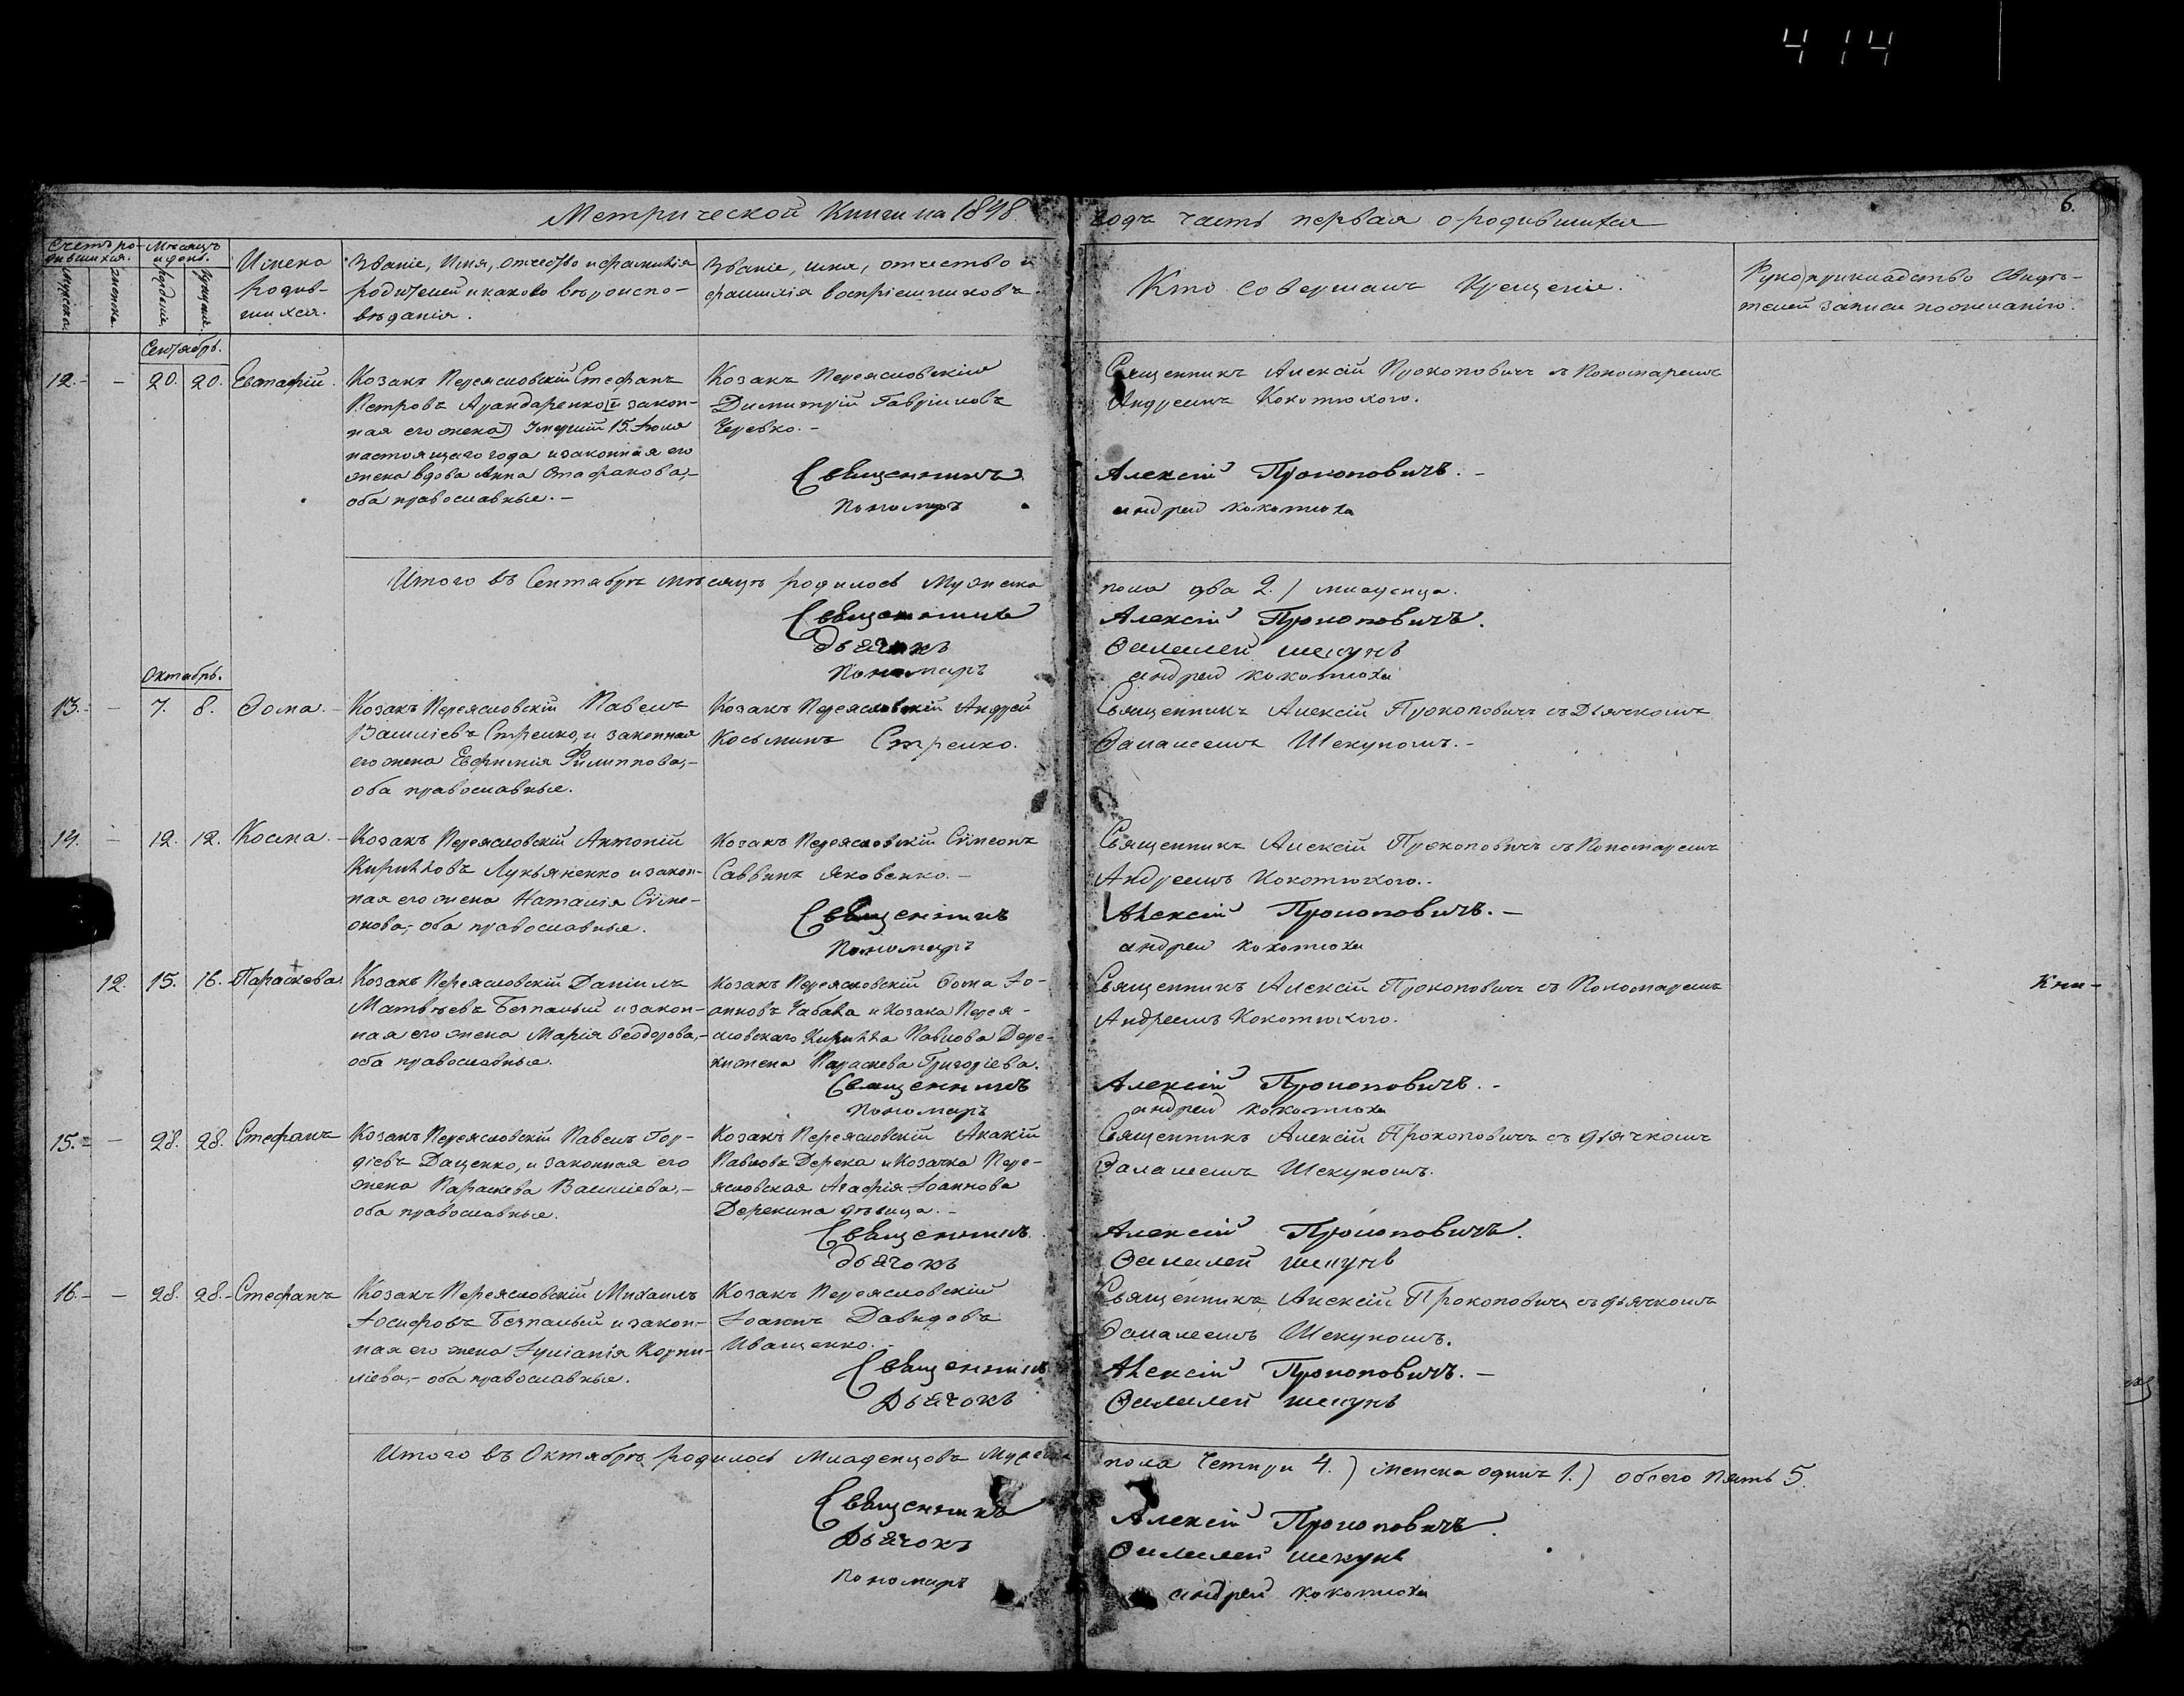 414
6.
Метрической Книги на 1848. годъ часть первая о родившихся
Счетъ ро-
дившихся.
Мѣсяцъ
и день.
Мужеска.
женска.
рожденія.
крещенія.
Имена
родив-
шихся.
Званіе, Имя, отчество и фамилія
родителей и какого вѣроиспо-
вѣданія.
Званіе, имя, отчество и
фамилія воспріемниковъ.
Кто совершалъ Крещеніе.
Рукоприкладство свидѣ-
телей записи по желанію.
Сентябрь.
12.- - 20. 20. Евстафій.
Козакъ Переясловскій Стефанъ
Петровъ Арандаренко (и закон-
ная его жена) Умершій 15. Іюля
настоящаго года и законная его
жена вдова Анна Стефанова,-
оба православные.-
Козакъ Переясловскій
Димитрій Гавріиловъ
Черевко.-
Священникъ Алексій Прокоповичъ съ Пономаремъ
Андреемъ Кокотюхою.
Священникъ Алексій Прокоповичъ.-
Пономарь андрей кокотюха
Итого въ Сентябрѣ мѣсяцѣ родилось Мужеска пола два 2.) младенца.
Священникъ Алексій Прокоповичъ.
дьячокъ Фалалей шекунъ
Пономарь андрей кокотюха
Октябрь.
13.- - 7. 8. Фома.-
Козакъ Переясловскій Павелъ
Василіевъ Стрелко, и законная
его жена Евфимія Филиппова,-
оба православные.
Козакъ Переясловскій Андрей
Косьминъ Стрелко.
Священникъ Алексій Прокоповичъ съ Дьячкомъ
Фалалеемъ Шекуномъ.-
14. - 12. 12. Косма.-
Козакъ Переясловскій Антоній
Кирилловъ Лукьяненко и закон-
ная его жена Наталія Сѵме-
онова,- оба православные.
Козакъ Переясловскій Сѵмеонъ
Саввинъ Яковенко.-
Священникъ Алексій Прокоповичъ съ Пономаремъ
Андреемъ Кокотюхою.
Священникъ Алексій Прокоповичъ.-
Пономарь андрей кокотюха
12. 15. 16. Параскева.
Козакъ Переясловскій Даніилъ
Матвѣевъ Безпалый и закон-
ная его жена Марія Феодорова,-
оба православные.
Козакъ Переясловскій Фома Іо-
анновъ Чабаха и Козака Перея-
словскаго Кирилла Павлова Дере-
ки жена Параскева Григоріева.
Священникъ Алексій Прокоповичъ съ Пономаремъ
Андреемъ Кокотюхою.
Кни-
Священникъ Алексій Прокоповичъ.-
Пономарь андрей кокотюха
15.- - 28. 28. Стефанъ
Козакъ Переясловскій Павелъ Гор-
діевъ Даценко, и законная его
жена Параскева Василіева,-
оба православные.
Козакъ Переясловскій Акакій
Павловъ Дерека и Козачка Пере-
ясловская Агафія Іоаннова
Дерекина дѣвица.-
Священникъ Алексій Прокоповичъ съ дьячкомъ
Фалалеемъ Шекуномъ.
Священникъ Алексій Прокоповичъ.
дьячокъ Фалалей шекунъ
16.- - 28. 28.- Стефанъ
Козакъ Переясловскій Михаилъ
Іосифовъ Безпалый и закон-
ная его жена Іуліанія Корни-
ліева,- оба православные.
Козакъ Переясловскій
Іоаннъ Давидовъ
Иващенко.-
Священникъ Алексій Прокоповичъ съ дьячкомъ
Фалалеемъ Шекуномъ.
Священникъ Алексій Прокоповичъ.-
Дьячокъ Фалалей шекунъ
Итого въ Октябрѣ родилось Младенцовъ Мужеска пола Четыри 4.) женска одинъ 1.) обоего пять 5.
Священникъ Алексій Прокоповичъ.
Дьячокъ Фалалей шекунъ
Пономарь андрей кокотюха